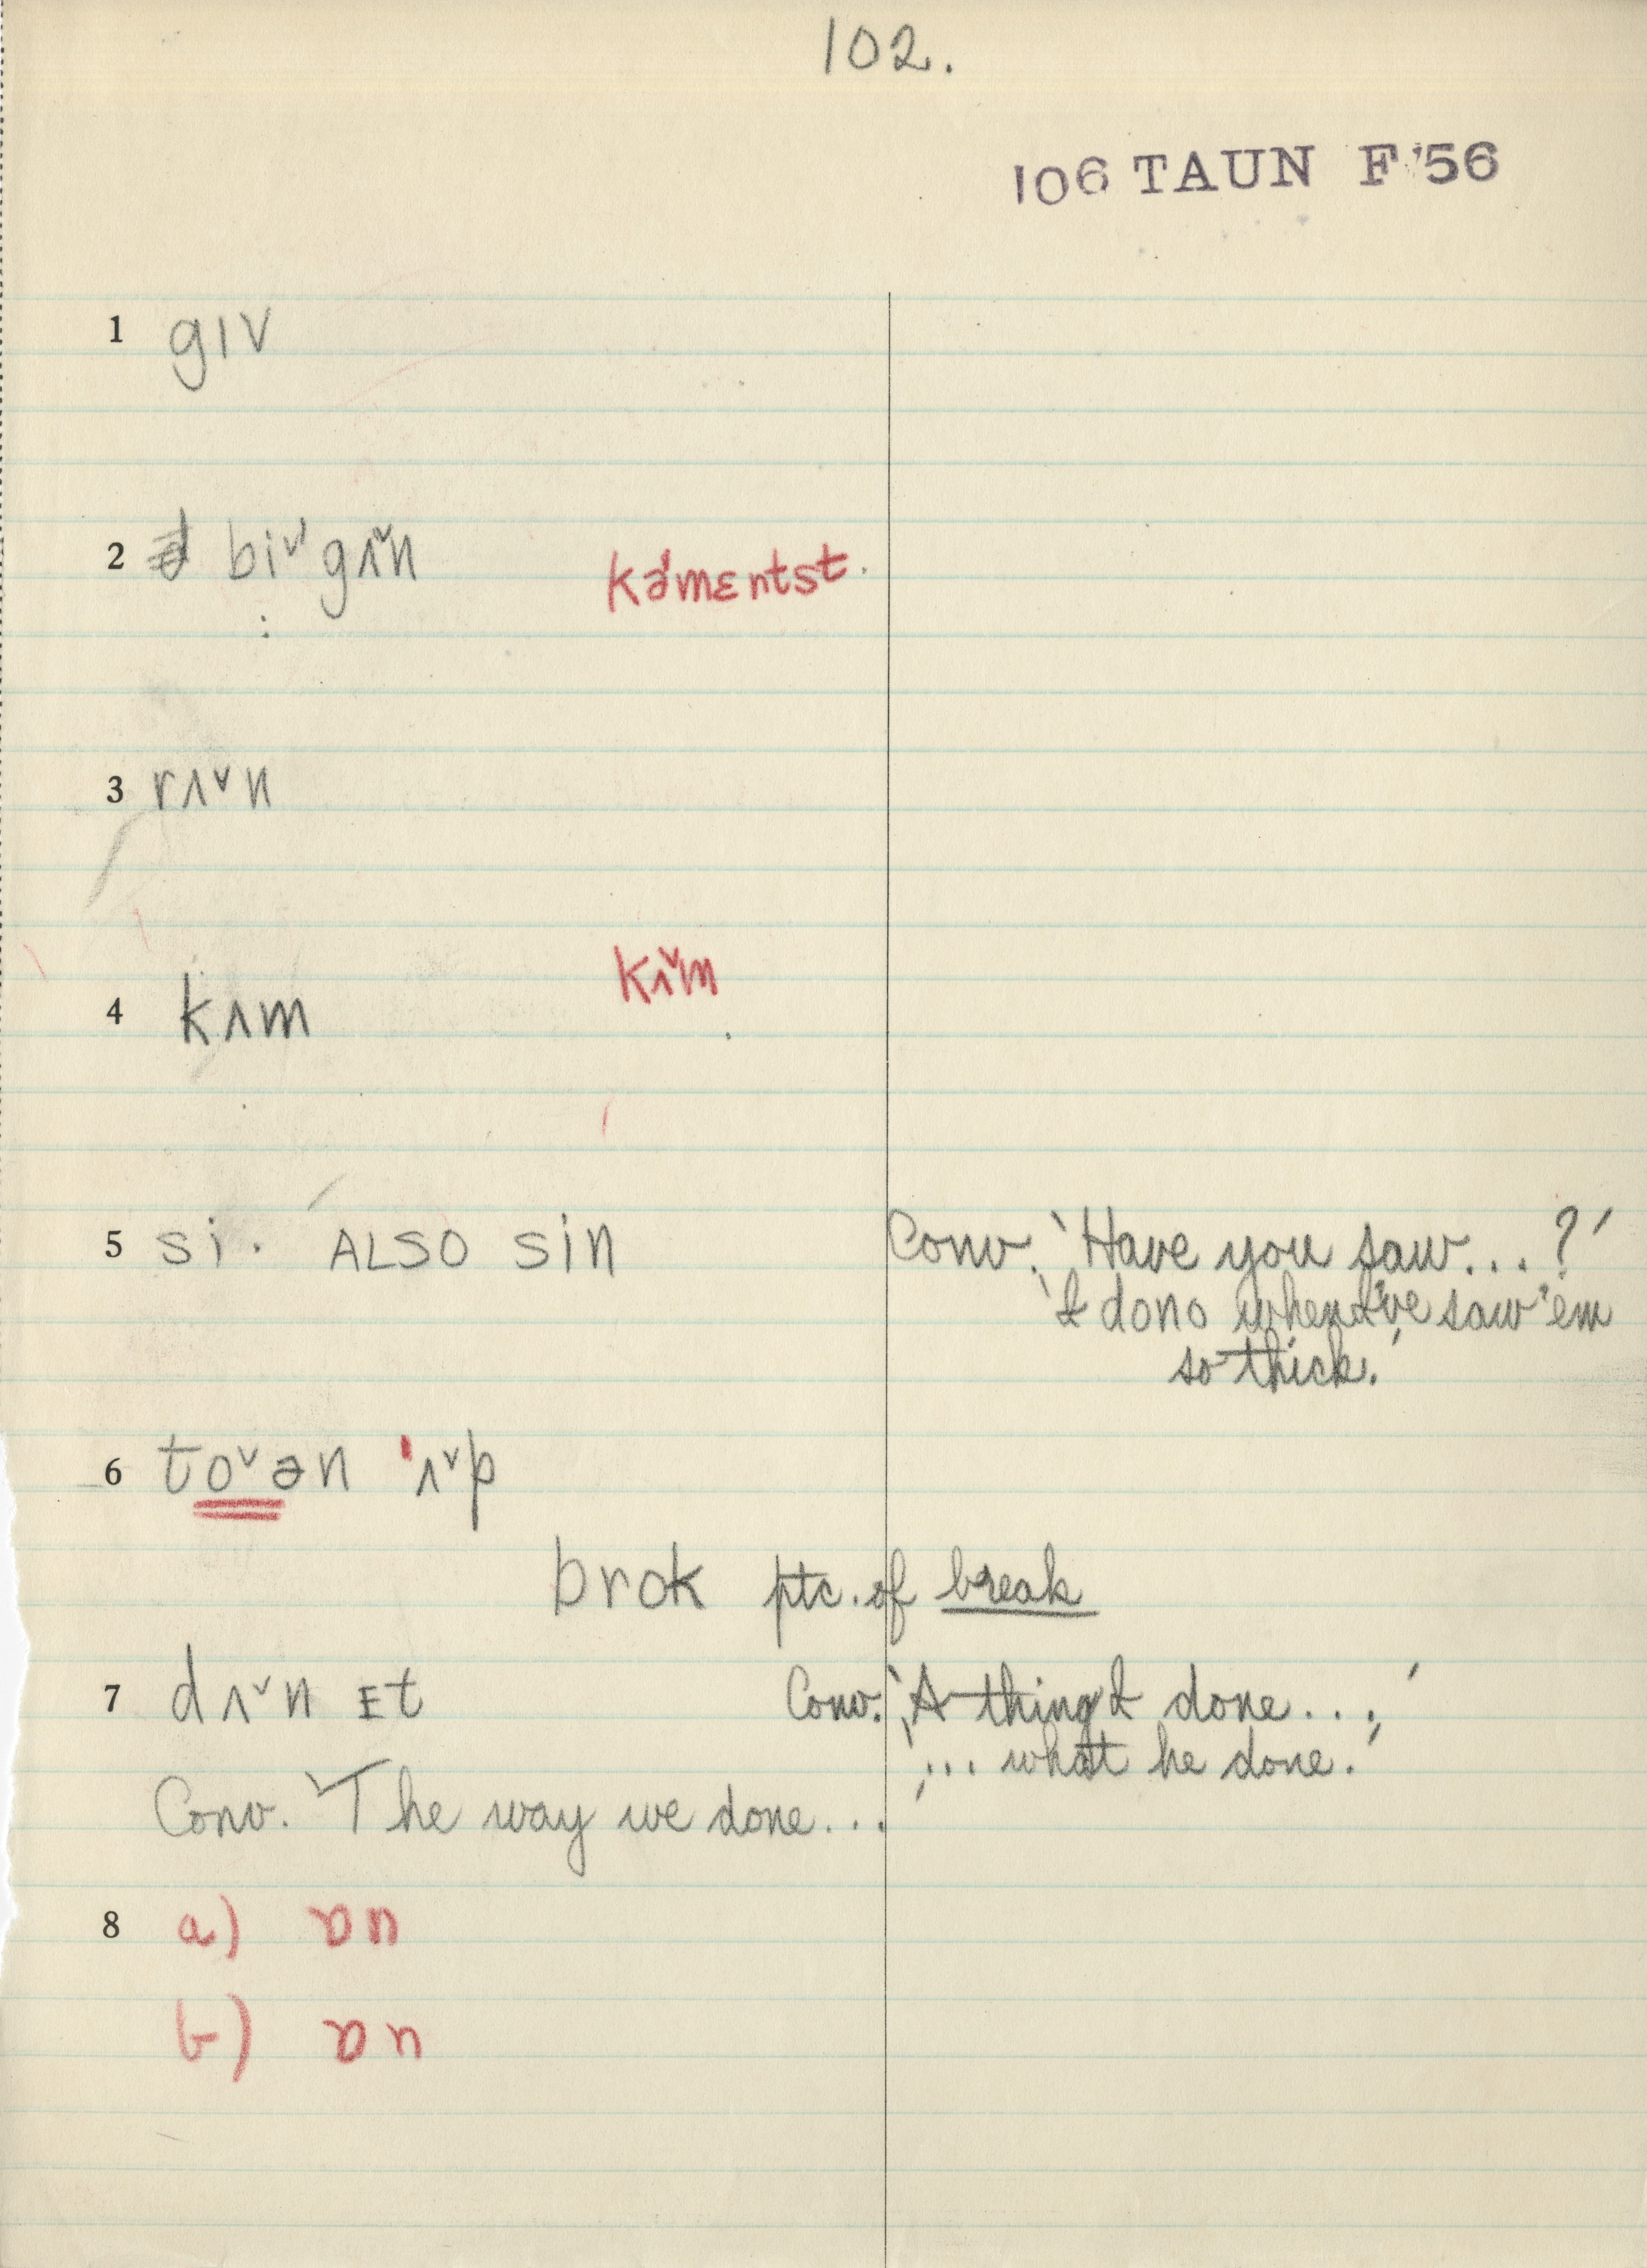 102.
106 TAUN F '56
1 gɪv
2 biˇˈgʌˇn kəˈmɛntst
3 rʌˇn
4 kʌm kʌˇm
5 si. ALSO sin Conv. 'Have you saw...?'
'I dono when I've saw 'em
so thick.'
6 toˇən ˈʌˇp
brok ptc. of break
7 dʌˇn ɪt Conv. 'A thing I done...'
'... what he done.'
Conv. 'The way we done...'
8 a) ɒn
b) ɒn